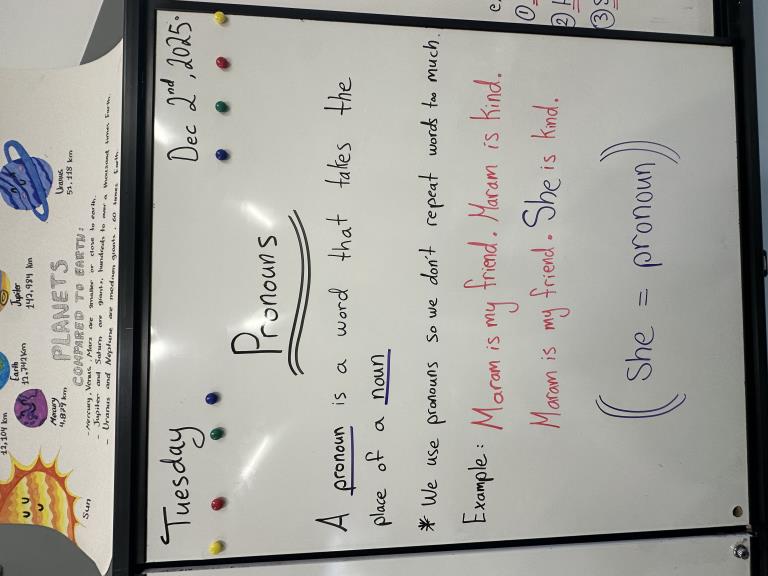 Tuesday
Dec 2nd, 2025.
Pronouns
A pronoun is a word that takes the
place of a noun
* We use pronouns so we don't repeat words too much.
Example: Maram is my friend. Maram is kind.
Maram is my friend. She is kind.
((She = pronoun))
PLANETS
COMPARED TO EARTH:
- Mercury, Venus, Mars are smaller or close to earth.
- Jupiter and Saturn are giants, hundreds to over a thousand times Earth.
- Uranus and Neptune are medium giants: 60 times Earth.
Sun
12,104 km
Mercury
4,879 km
Earth
12,742km
Jupiter
142,984 km
Uranus
51,118 km
①
②
③